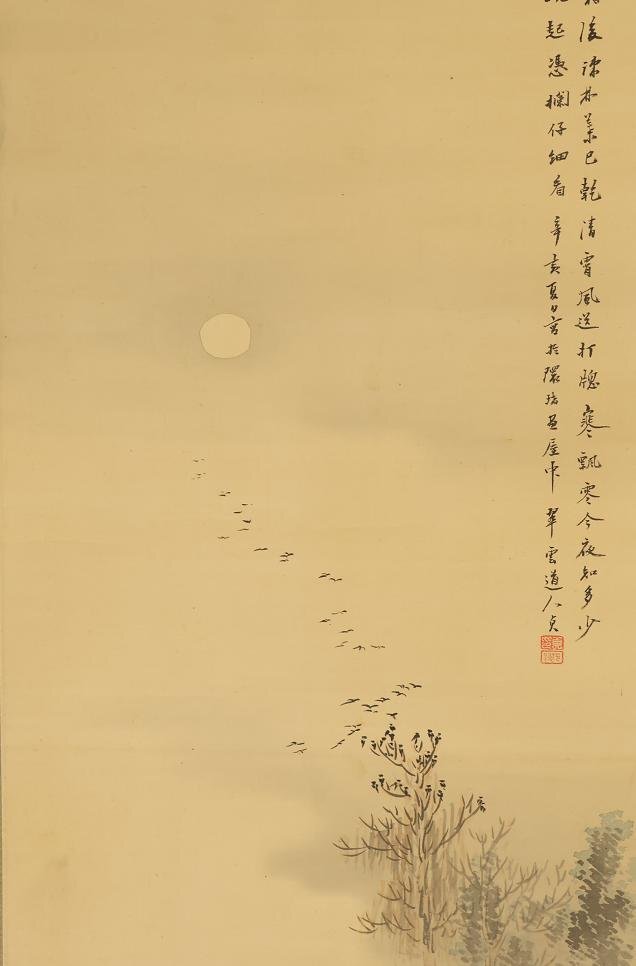 後疎林葉已乾清霄風送打牕寒飄零今夜知多少
起憑欄仔細看 辛亥夏日写於環屋中 翠雲道人貞